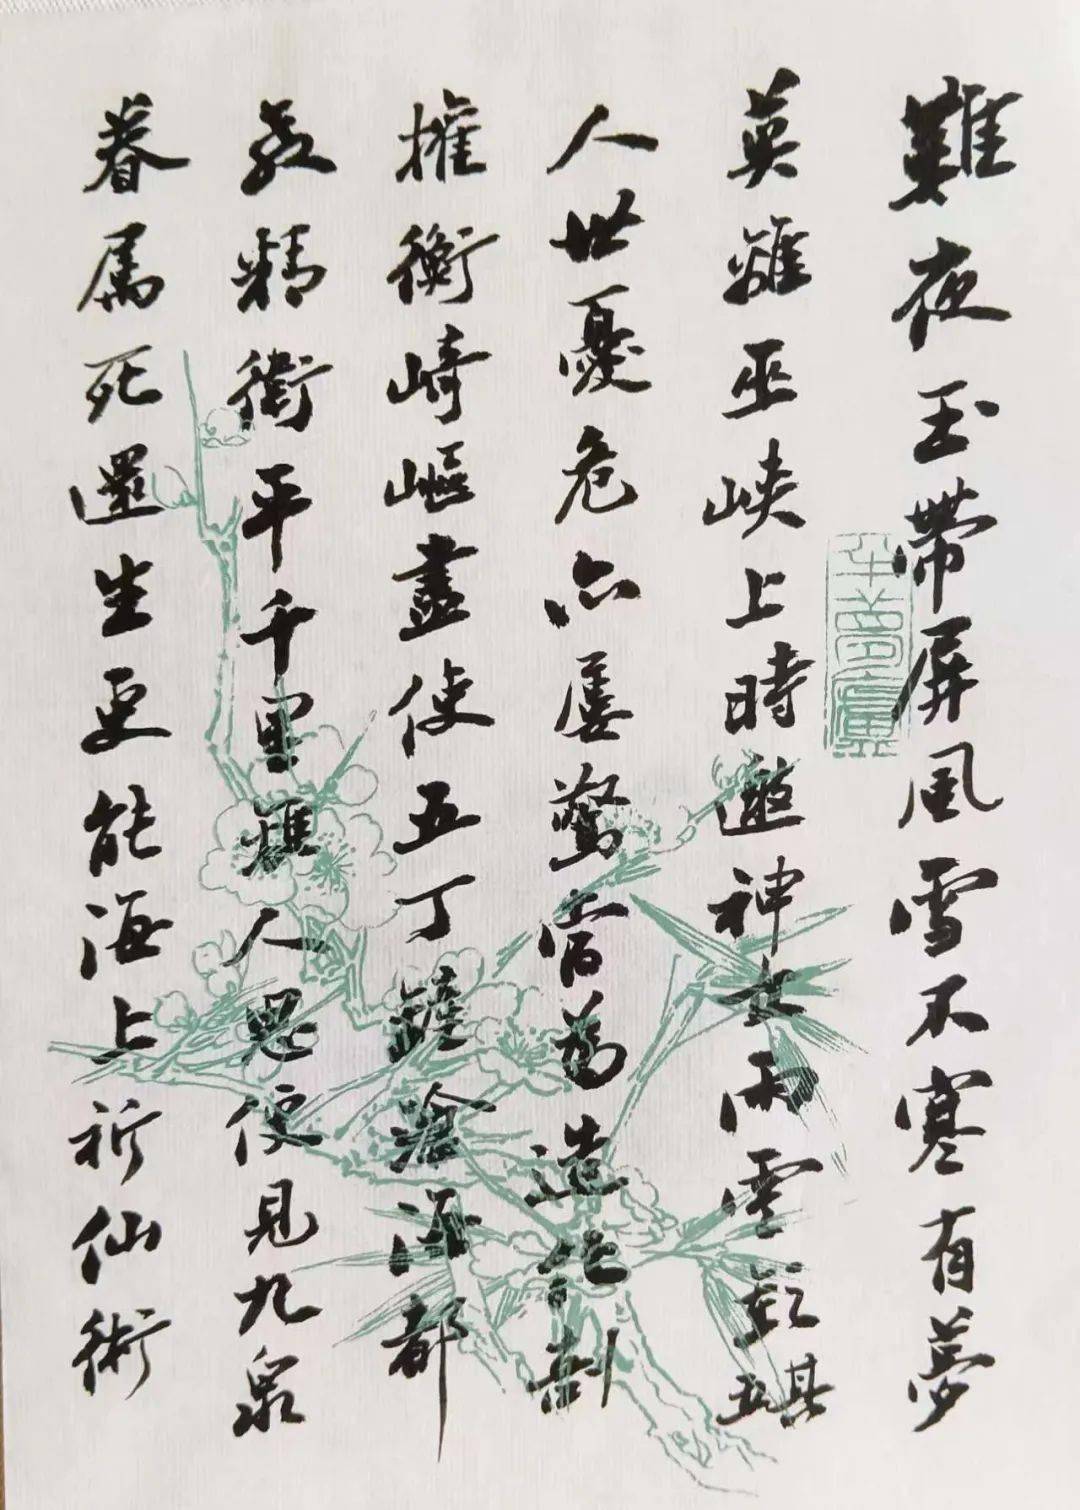 難夜玉帶屏風雪不寒有夢
英難巫峽上時邀神女雨雲
人世憂危亦屢驚官為造化
擁衡崎嶇盡使五丁鏟滄海都
教精衛平千里樵人思便見九泉
眷屬死還生更能海上祈仙術